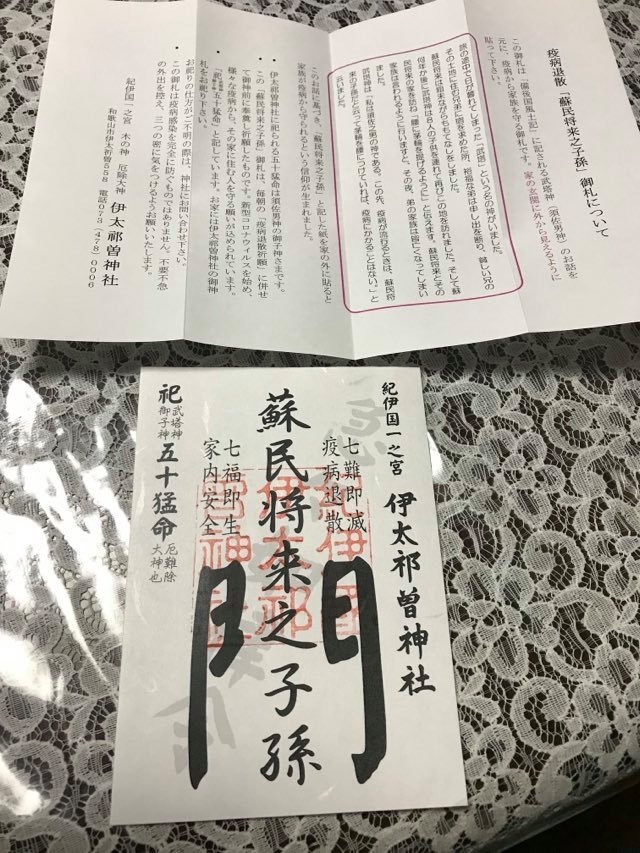 疫病退散「蘇民将来之子孫」御札について
この御札は「備後国風土記」に記される武塔神（須佐男神）のお話を
元に、疫病から家族を守る御札です。家の玄関に外から見えるように
貼って下さい。
旅の途中で日が暮れてしまった「武塔」という名の神がいました。
その土地に住む兄弟に宿を求めた所、裕福な弟は申し出を断り、貧しい兄の
蘇民将来は粗末ながらももてなしをしました。
何年か後に武塔神は８人の子を連れて再びこの地を訪れました。そして蘇
民将来の家を訪ね「腰に茅輪を提げるように」と伝えます。蘇民将来とその
家族は言われるように行いますと、その夜、弟の家族は皆亡くなってしまい
ました。
武塔神は「私は須佐之男の神である。この先、疫病が流行るときは、蘇民将
来の子孫だと云って茅輪を腰につけていれば、疫病にかかることはない。」と
言いました。
このお話に基づき、「蘇民将来之子孫」と記した紙を家の外に貼ると
家族が疫病から守られるという信仰が生まれました。
・伊太祁曽神社に祀られる五十猛命は須佐男神の御子神さまです。
・この「蘇民将来之子孫」御札は、毎朝の「疫病退散祈願」に併せ
て御神前に奉奠し祈願したものです。新型コロナウィルスを始め、
様々な疫病から、その家に住む人を守る願いが込められています。
「祀武塔神御子神五十猛命」と記しています。お家には伊太祁曽神社の御神
札をお祀り下さい。
お祀りの仕方がご不明の際は、神社にお問い合わせ下さい。
・この御札は疫病感染を完全に防ぐものではありません。不要不急
の外出を控え、三つの密に気をつけるようお願いいたします。
紀伊国一之宮　木の神　厄除大神　伊太祁曽神社
和歌山市伊太祈曽558　電話073（478）0006
紀伊国一之宮　伊太祁曽神社
七難即滅
疫病退散
蘇民将来之子孫
門
七福即生
家内安全
祀 武塔神御子神 五十猛命 厄難除大神也
紀伊国
伊太祁
曽神社